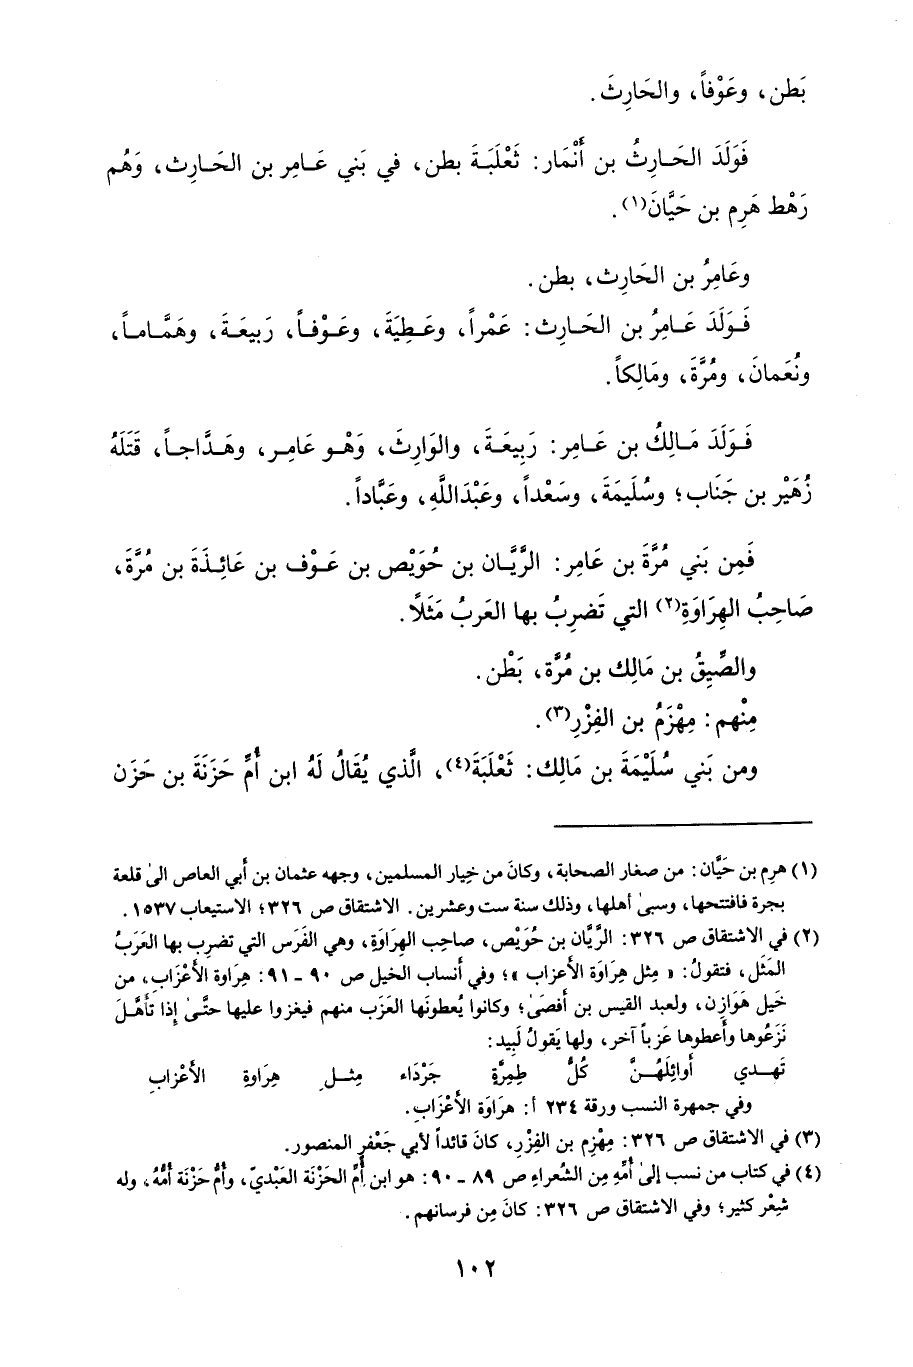 بَطن، وعَوْفاً، والحَارِثَ.
فَوَلَدَ الحَـارِثُ بن أَنْمَار: ثَعْلَبَـةَ بطن، في بَني عَـامِر بن الحَـارِث، وَهُم
رَهْط هَرِم بن حَيَّانَ(١).
وعَامِرُ بن الحَارِث، بطن.
فَـوَلَدَ عَـامِرُ بن الحَـارِث: عَمْراً، وعَـطِيَّةَ، وعَـوْفـاً، رَبِيعَـةَ، وهَمَّـامـاً،
ونُعَمانَ، ومُرَّةَ، ومَالِكاً.
فَـوَلَدَ مَـالِكُ بن عَـامِر: رَبِيعَـةَ، والوَارِثَ، وَهْـو عَامِـر، وهَـدَّاجـاً، قَتَلَهُ
زُهَيْر بن جَنَاب؛ وسُلَيمَةَ، وسَعْداً، وعَبْدَاللَّهِ، وعَبَّاداً.
فَمِن بَني مُرَّةَ بن عَامِر: الرَّيَّـان بن حُوَيْص بن عَـوْف بن عَـائِـذَةَ بن مُرَّةَ،
صَاحِبُ الهِرَاوَةِ(٢) التي تَضرِبُ بها العَربُ مَثَلًا.
والصِّيِقُ بن مَالِك بن مُرَّة، بَطْن.
مِنْهم: مِهْزَمُ بن الفِزْرِ(٣).
ومن بَني سُلَيْمَةَ بن مَالِك: ثَعْلَبَةَ(٤)، الَّذي يُقَالُ لَهُ ابن أُمِّ حَزَنَةَ بن حَزَن
(١) هرِم بن حَيَّان: من صغار الصحابة، وكانَ من خيار المسلمين، وجهه عثمان بن أبي العاص الىٰ قلعة
بجرة فافتتحها، وسبىٰ أهلها، وذلك سنة ست وعشرين. الاشتقاق ص ٣٢٦؛ الاستيعاب ١٥٣٧.
(٢) في الاشتقاق ص ٣٢٦: الرَّيَّان بن حُوَيْص، صاحِب الهِرَاوَةِ، وهي الفَرَس التي تضرِب بها العَرَبُ
المَثَل، فتقولُ: « مِثل هِرَاوَة الأعزاب »؛ وفي أنساب الخيل ص ٩٠ - ٩١: هِرَاوة الأعْزَابِ، من
خَيل هَوَازِن، ولعبد القيس بن أفصىٰ؛ وكانوا يُعطونَها العَزَب منهم فيغزوا عليها حتَّىٰ إذا تأهَّـلَ
نَزَعُوها وأعطوها عَزباً آخر، ولها يَقولُ لَبِيد:
تَهـدي أوائِلَهُـنَّ كُلُّ طِمِرَّةٍ جَرْدَاء مِثـلِ هِرَاوةِ الأعْزَابِ
وفي جمهرة النسب ورقة ٢٣٤ أ: هرَاوَة الأعْزَابِ.
(٣) في الاشتقاق ص ٣٢٦: مِهْزِم بن الفِزْرِ، كانَ قائداً لأبي جَعْفرٍ المنصور.
(٤) في كتاب من نسب إلىٰ أُمِّهِ مِن الشُعراءِ ص ٨٩ - ٩٠: هو ابن أمِّ الحَزْنَة العَبْديّ، وأُمُّ حَزْنَة أمُّهُ، وله
شِعْر كثير؛ وفي الاشتقاق ص ٣٢٦: كانَ مِن فرسانهم.
١٠٢